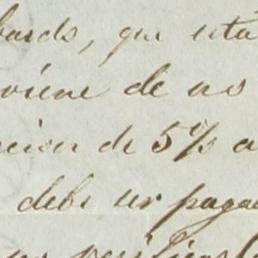 bards, que esta
viene de no
cion de 5% a
debe ser paga